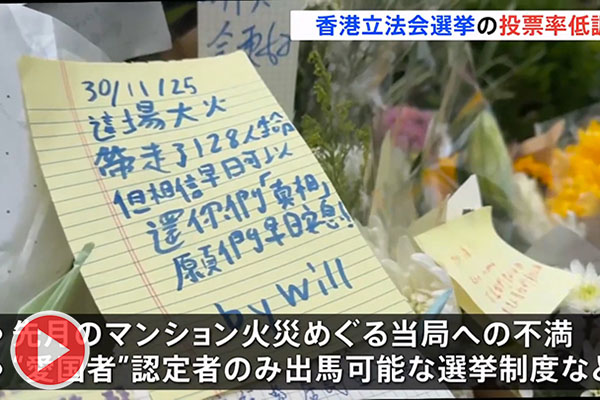 香港立法会選挙の投票率低調
30/11/25
這場大火
帶走了128人生命
但相信早日可以
還你們「真相」
願你們早日安息!
by Will
先月のマンション火災めぐる当局への不満
“愛国者”認定者のみ出馬可能な選挙制度など